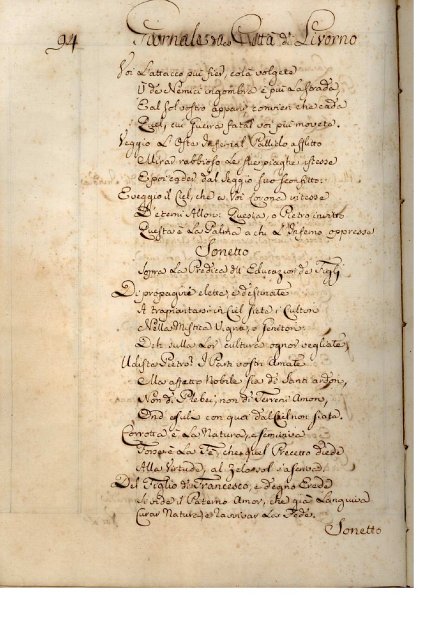 94 Giornale Città di Livorno
Voi l'attacco più fier, colà volgete
U' de Nemici ingombra è più la strada,
E al sol vostro apparir convien che cada
Quel, cui guerra fatal voi più movete.
Veggio l'Oste Infernal afflitto
Mirar rabbioso le piaghe istesse
E poi ceder dal seggio suo sconfitto:
E veggio il Ciel, che a Voi Corona intesse
D'eterni Allori: Questa, o Pietro invitto
Questa è la Palma a chi l'Inferno oppresse
Sonetto
Sopra la Predica dell' Educazion de Figlj
Di propagini elette, e destinate
A trapiantarsi in Ciel siete i Cultori
Nella Mistica Vigna, o Genitori
Deh sulla lor cultura ognor vegliate,
Udiste Pietro? I Parti vostri Amate
Ma affetto Nobile sia di Santi ardori,
Non di Plebei, non di Terreni Amori,
Ond' esule con quei dal Ciel non siate.
Corrotta è la Natura, e
la Fè, che quel Precetto diede
Alla Virtude, al Zelo
Del Figlio di Francesco, e degno Erede
Si vide il Paterno Amor, che già languiva
Curar Natura, e ravvivar la Fede.
Sonetto